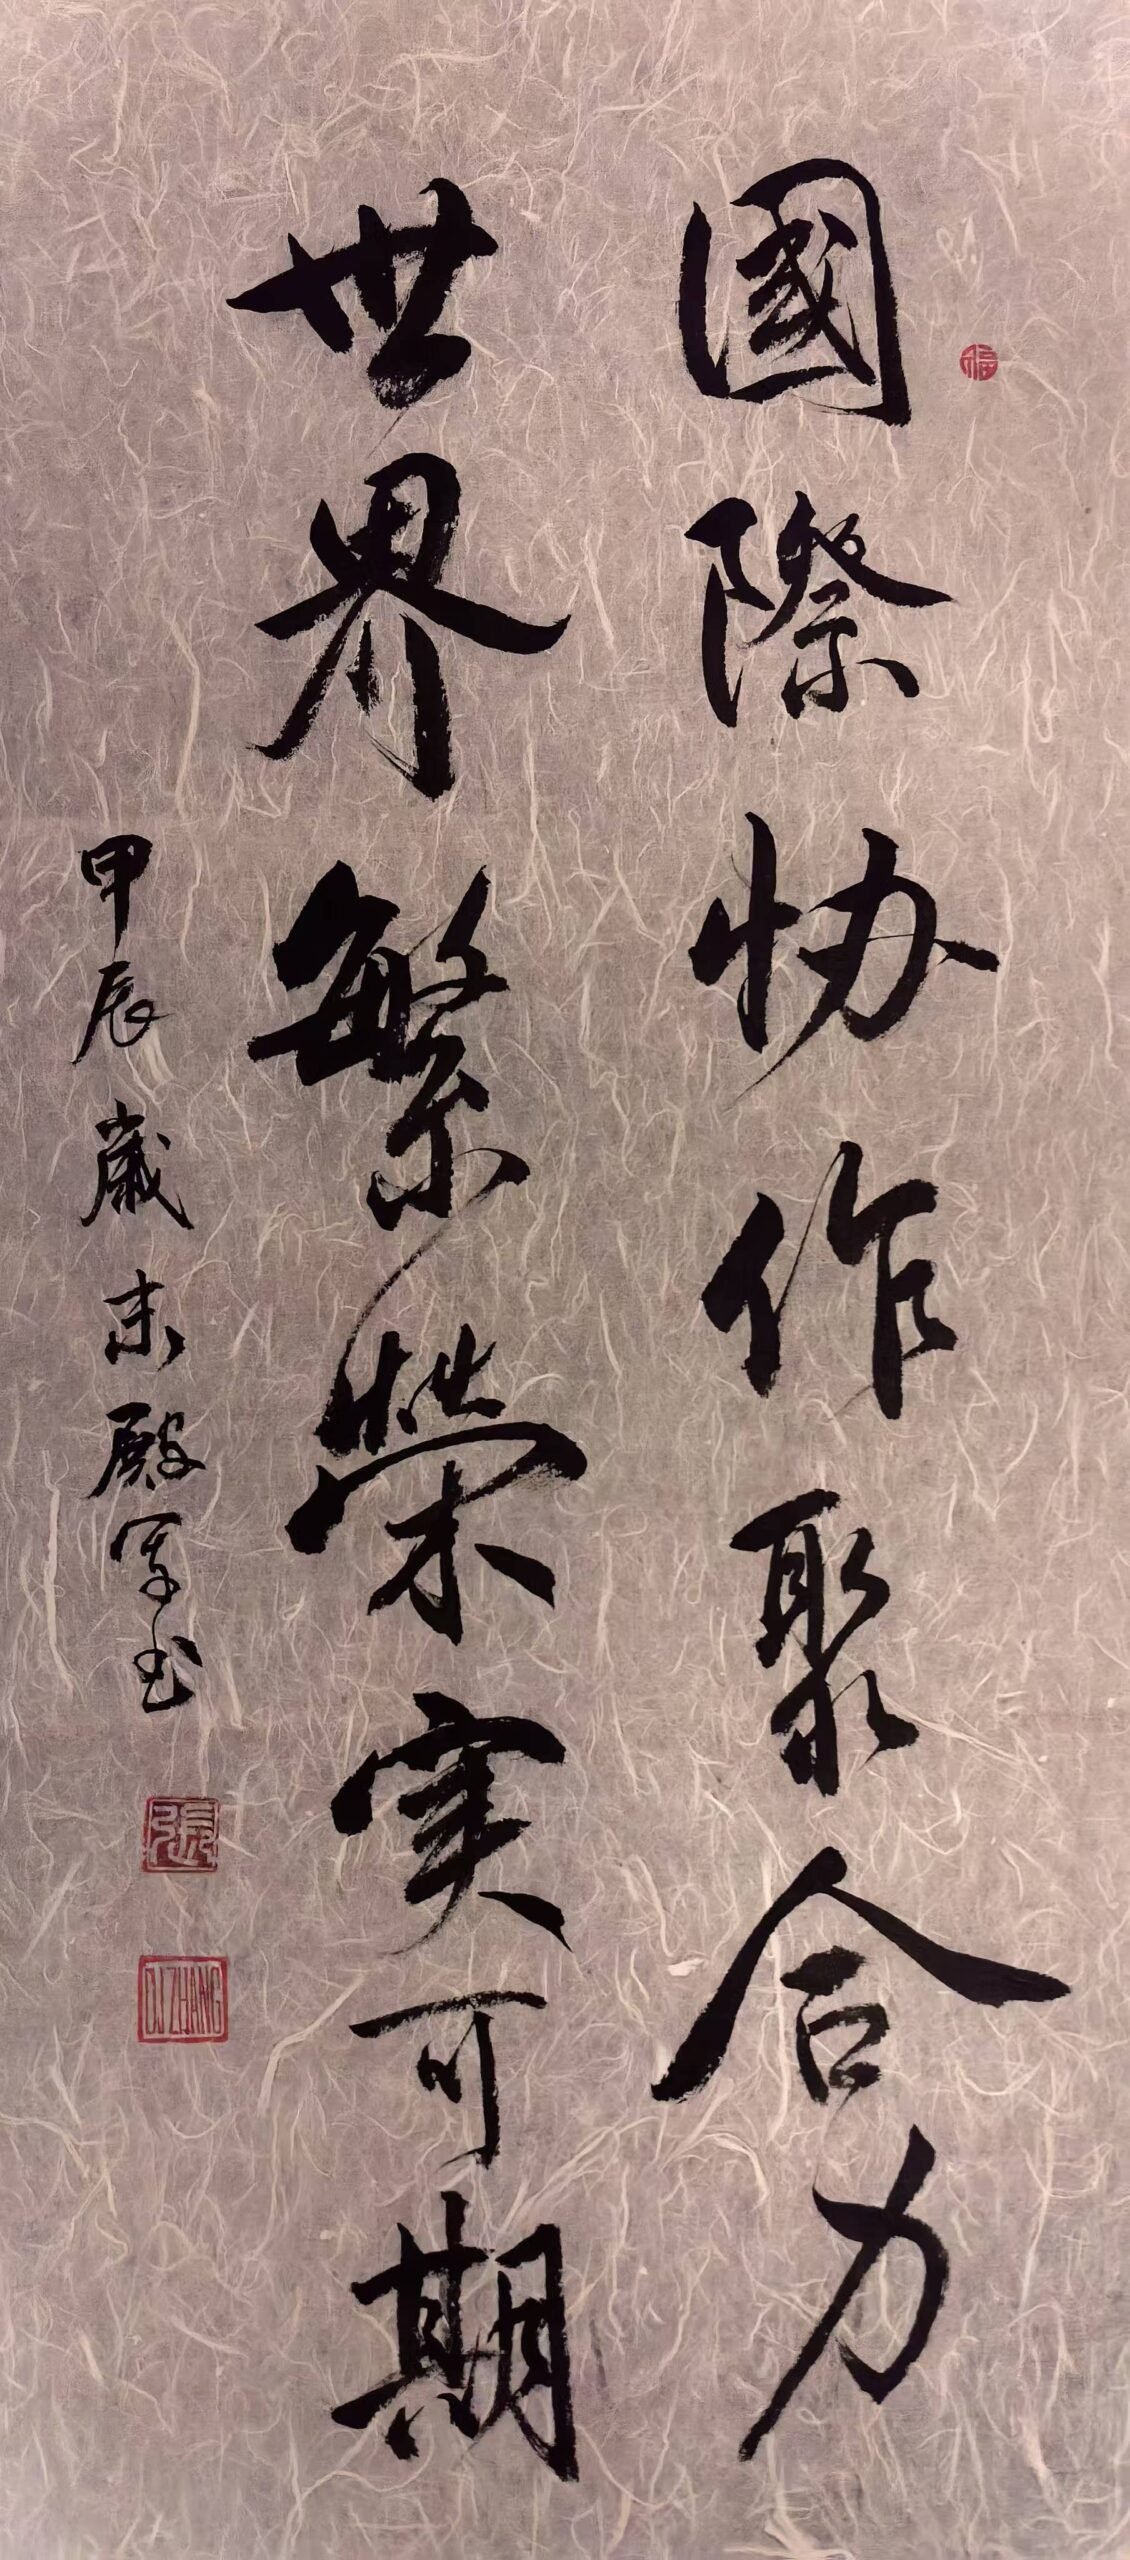 國際协作聚合力
世界繁榮実可期
甲辰歲末殿军书
福
張
DJ ZHANG